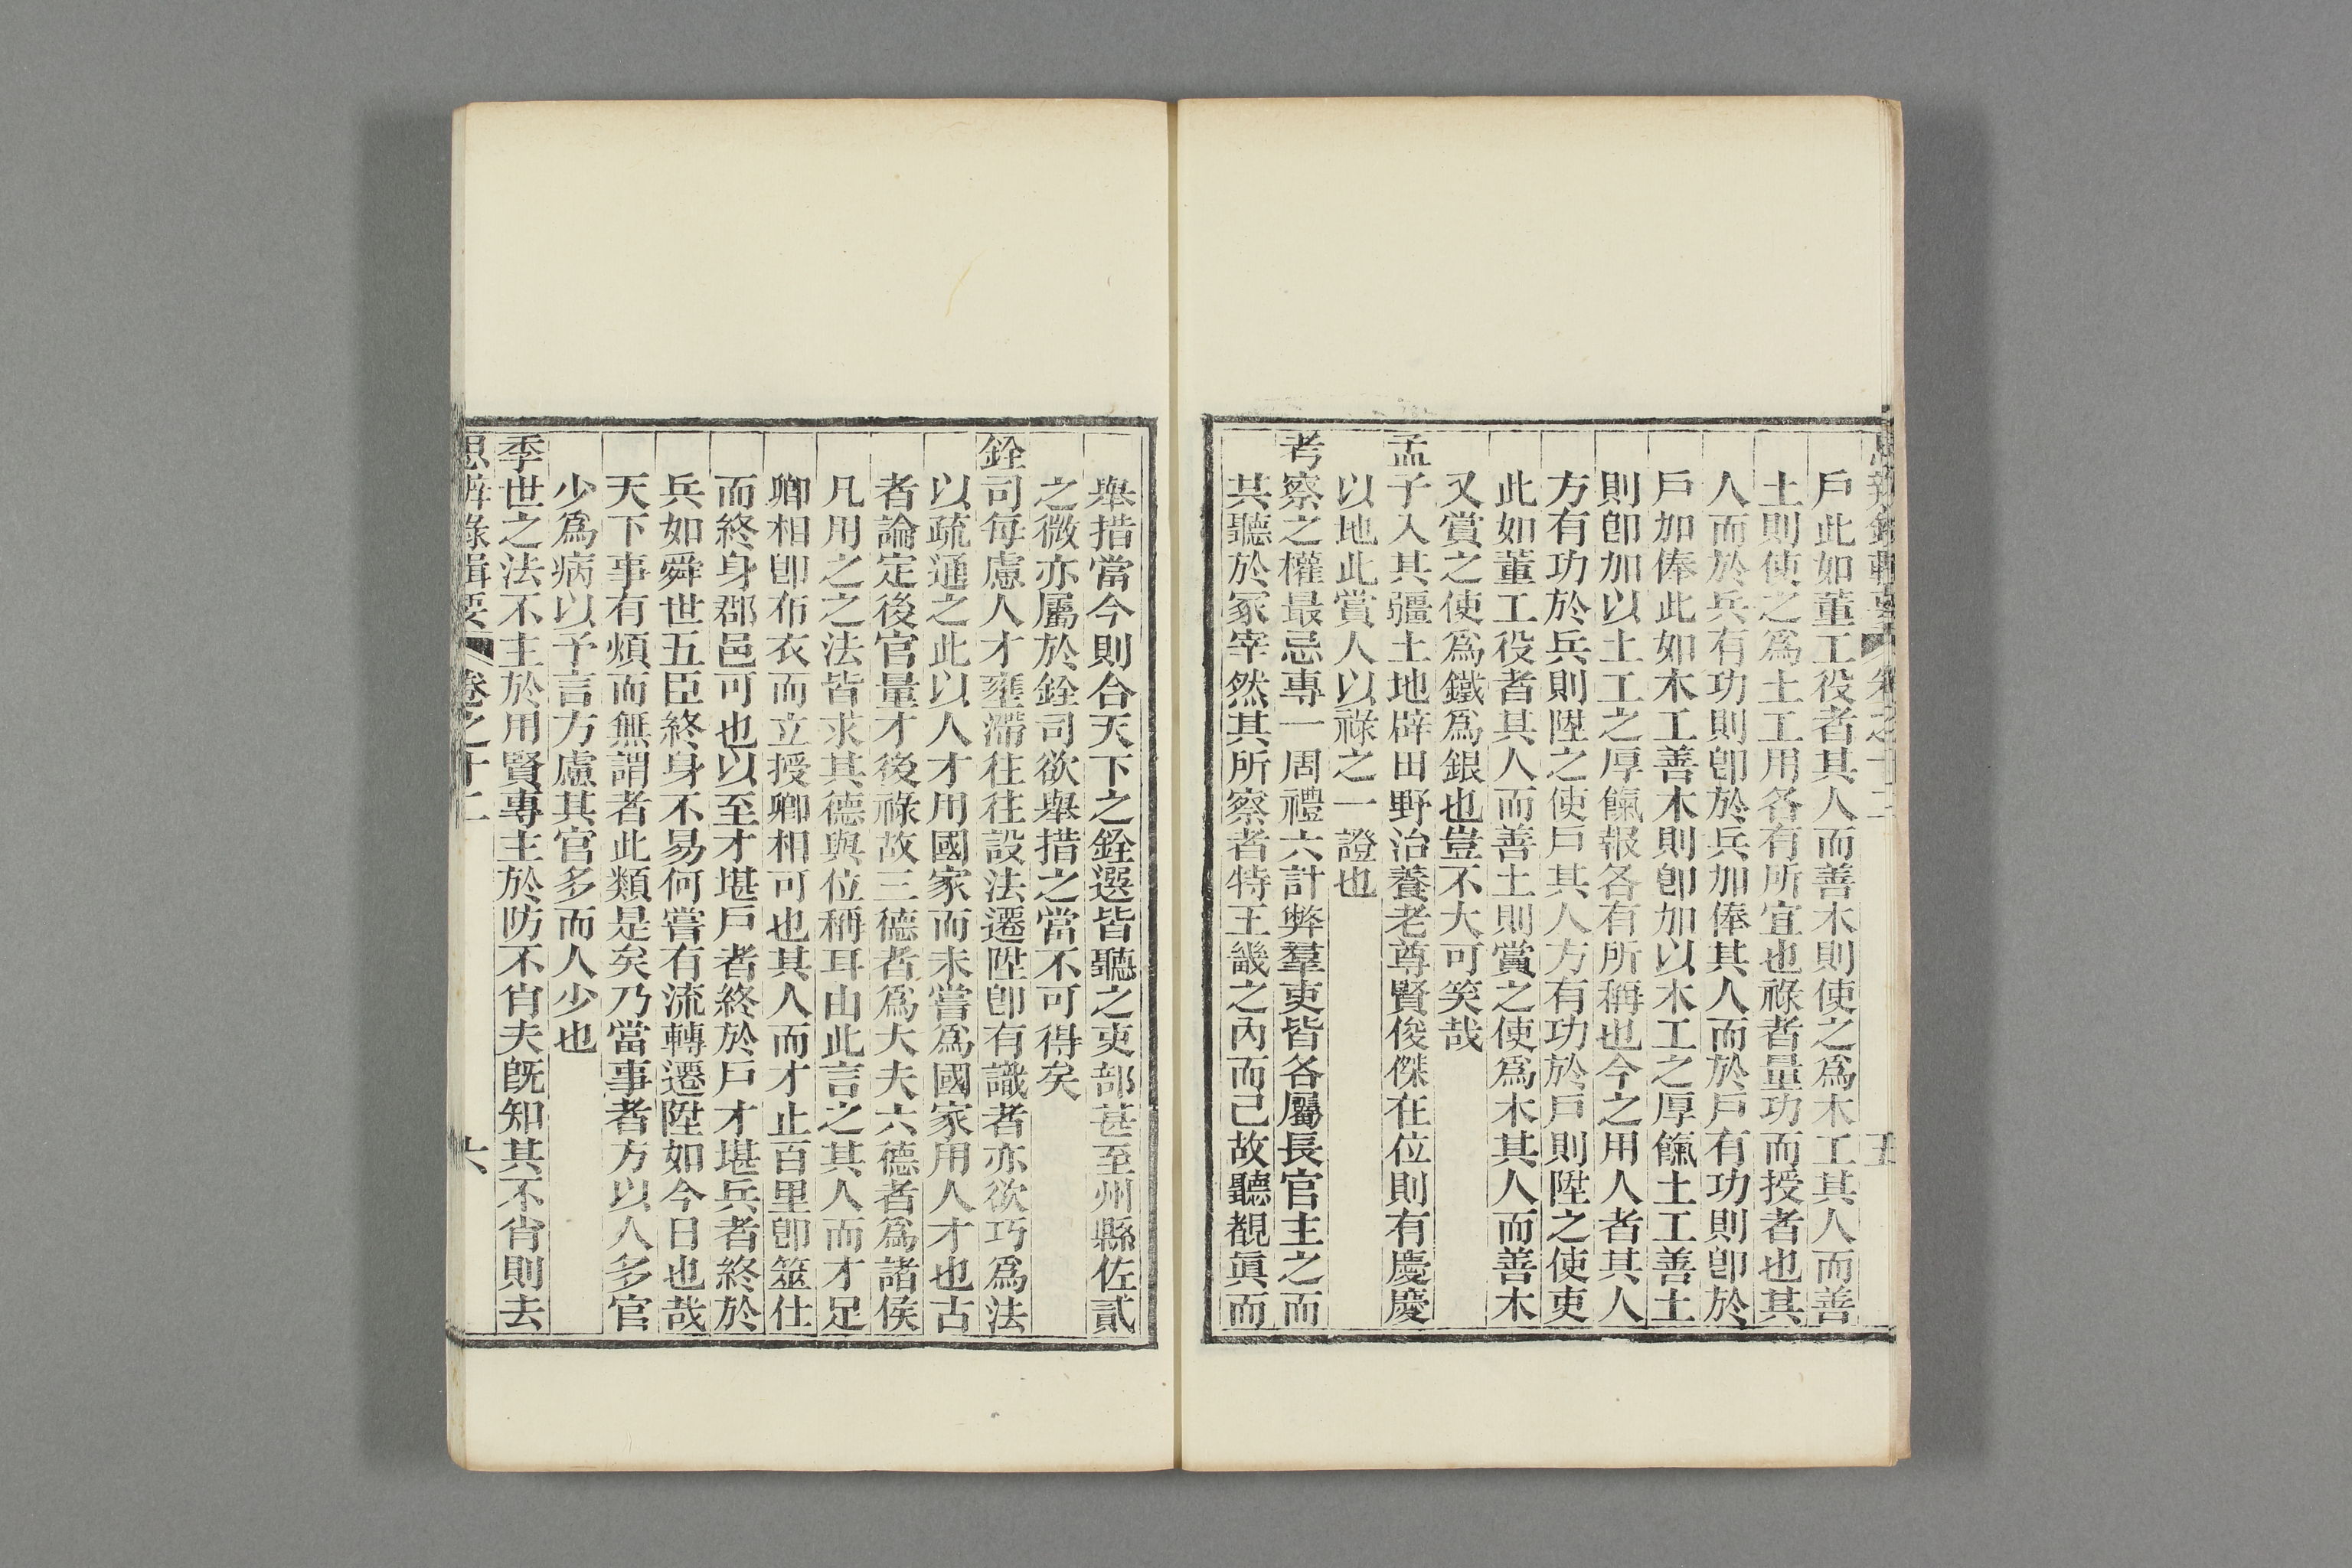 思辨錄輯要 卷之十二 五
戶此如董工役者其人而善木則使之爲木工其人而善
土則使之爲土工用各有所宜也祿者量功而授者也其
人而於兵有功則卽於兵加俸其人而於戶有功則卽於
戶加俸此如木工善木則卽加以木工之厚餼土工善土
則卽加以土工之厚餼報各有所稱也今之用人者其人
方有功於兵則陞之使戶其人方有功於戶則陞之使吏
此如董工役者其人而善土則賞之使爲木其人而善木
又賞之使爲鐵爲銀也豈不大可笑哉
孟子入其疆土地辟田野治養老尊賢俊傑在位則有慶慶
以地此賞人以祿之一證也
考察之權最忌專一周禮六計弊羣吏皆各屬長官主之而
其聽於冢宰然其所察者特王畿之內而已故聽覩眞而
舉措當今則合天下之銓選皆聽之吏部甚至州縣佐貳
之微亦屬於銓司欲舉措之當不可得矣
銓司每慮人才壅滯往往設法遷陞卽有識者亦欲巧爲法
以疏通之此以人才用國家而未嘗爲國家用人才也古
者論定後官量才後祿故三德者爲大夫六德者爲諸侯
凡用之之法皆求其德與位稱耳由此言之其人而才足
卿相卽布衣而立授卿相可也其人而才止百里卽筮仕
而終身郡邑可也以至才堪戶者終於戶才堪兵者終於
兵如舜世五臣終身不易何嘗有流轉遷陞如今日也哉
天下事有煩而無謂者此類是矣乃當事者方以人多官
少爲病以予言方慮其官多而人少也
季世之法不主於用賢專主於防不肖夫旣知其不肖則去
思辨錄輯要 卷之十二 六